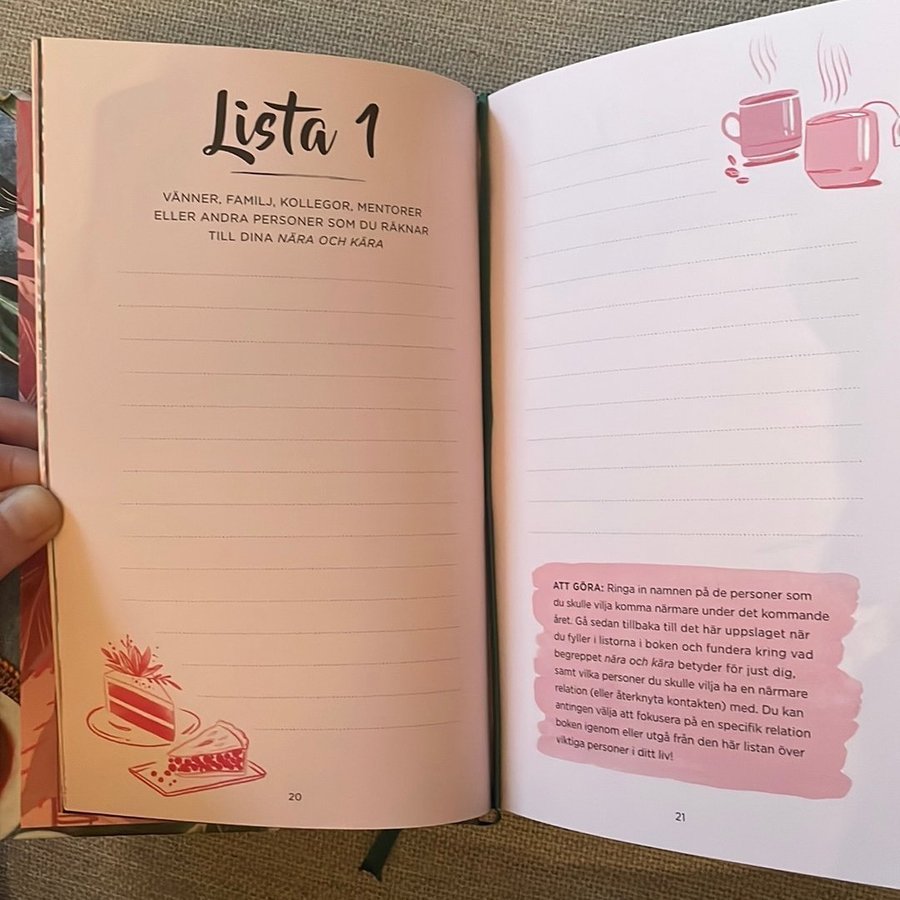 Lista 1
VÄNNER, FAMILJ, KOLLEGOR, MENTORER
ELLER ANDRA PERSONER SOM DU RÄKNAR
TILL DINA NÄRA OCH KÄRA
20
ATT GÖRA: Ringa in namnen på de personer som
du skulle vilja komma närmare under det kommande
året. Gå sedan tillbaka till det här uppslaget när
du fyller i listorna i boken och fundera kring vad
begreppet nära och kära betyder för just dig,
samt vilka personer du skulle vilja ha en närmare
relation (eller återknyta kontakten) med. Du kan
antingen välja att fokusera på en specifik relation
boken igenom eller utgå från den här listan över
viktiga personer i ditt liv!
21